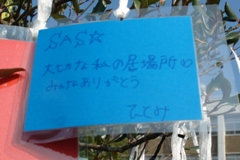 SAS☆
大切な私の居場所♡
みんなありがとう
ひとみ